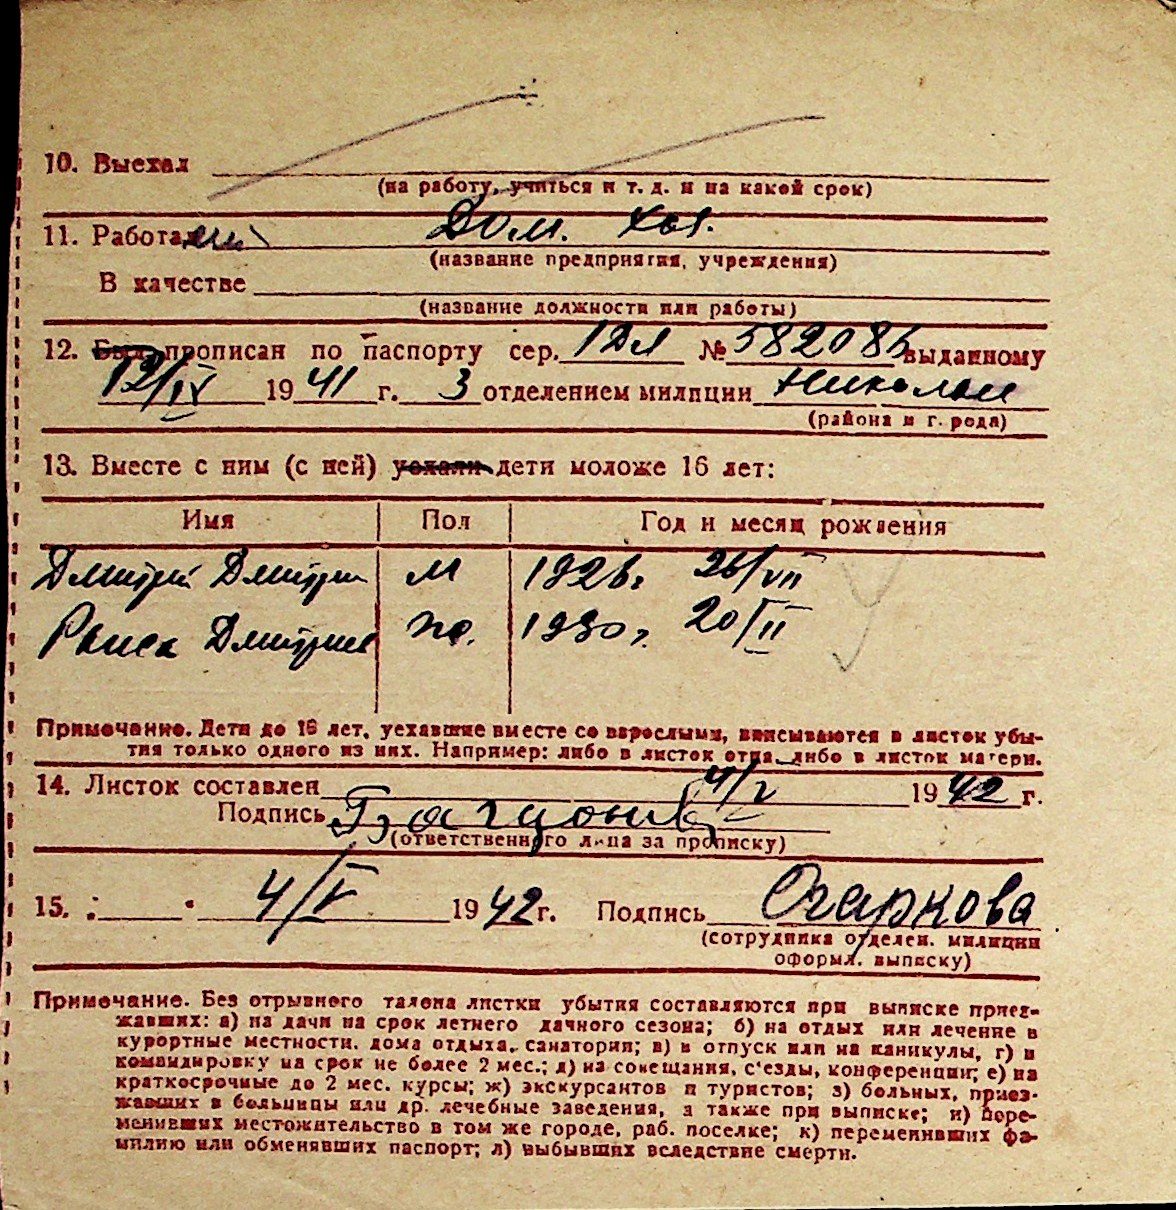 10. Выехал
(на работу, учиться и т. д. и на какой срок)
11. Работа Дом. хоз.
(название предприятия, учреждения)
В качестве
(название должности или работы)
12. Был прописан по паспорту сер. № 582086 выданному
12/IV 1941 г. 3 отделением милиции
(района и города)
13. Вместе с ним (с ней) уехали дети моложе 16 лет:
Имя Пол Год и месяц рождения
Дмитрий Дмитри м 1926г. 26/VII
Раиса Дмитрие ж. 1930г. 20/II
Примечание. Дети до 16 лет, уехавшие вместе со взрослыми, вписываются в листок убы-
тия только одного из них. Например: либо в листок отца, либо в листок матери.
14. Листок составлен 4/V 1942 г.
Подпись
(ответственного лица за прописку)
15. 4/V 1942 г. Подпись Огаркова
(сотрудника отделен. милиции
оформл. выписку)
Примечание. Без отрывного талона листки убытия составляются при выписке приез-
жавших: а) на дачи на срок летнего дачного сезона; б) на отдых или лечение в
курортные местности, дома отдыха, санатории; в) в отпуск или на каникулы, г) в
командировку на срок не более 2 мес.; д) на совещания, с'езды, конференции; е) на
краткосрочные до 2 мес. курсы; ж) экскурсантов и туристов; з) больных, приез-
жавших в больницы или др. лечебные заведения, а также при выписке; и) пере-
менивших местожительство в том же городе, раб. поселке; к) переменивших фа-
милию или обменявших паспорт; л) выбывших вследствие смерти.